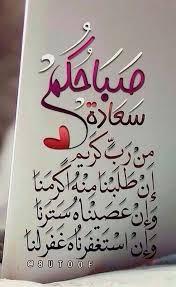 صَبَاحُكُمْ
سَعَادَةٌ
مِن رَبٍّ كَرِيمٍ
إِن طَلَبْنَا مِنْهُ أَكْرَمَنَا
وَإِن عَصَيْنَاهُ سَتَرَنَا
وَإِن اسْتَغْفَرْنَاهُ غَفَرَ لَنَا
@8UTOOF